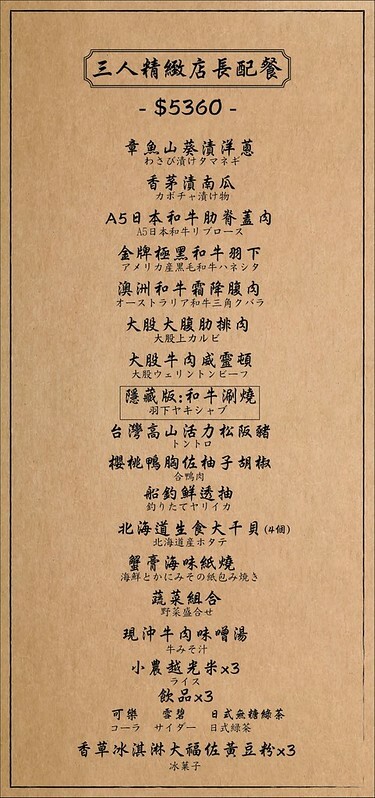 三人精緻店長配餐
- $5360 -
章魚山葵漬洋蔥
わさび漬けタマネギ
香茅漬南瓜
カボチャ漬け物
A5日本和牛肋脊蓋肉
A5日本和牛リブロース
金牌極黑和牛羽下
アメリカ産黒毛和牛ハネシタ
澳洲和牛霜降腹肉
オーストラリア和牛三角クバラ
大股大腹肋排肉
大股上カルビ
大股牛肉威靈頓
大股ウェリントンビーフ
隱藏版:和牛涮燒
羽下ヤキシャブ
台灣高山活力松阪豬
トントロ
櫻桃鴨胸佐柚子胡椒
合鴨肉
船釣鮮透抽
釣りたてヤリイカ
北海道生食大干貝(4個)
北海道産ホタテ
蟹膏海味紙燒
海鮮とかにみその紙包み焼き
蔬菜組合
野菜盛合せ
現沖牛肉味噌湯
牛みそ汁
小農越光米x3
ライス
飲品x3
可樂 雪碧 日式無糖綠茶
コーラ サイダー 日式緑茶
香草冰淇淋大福佐黃豆粉x3
冰菓子